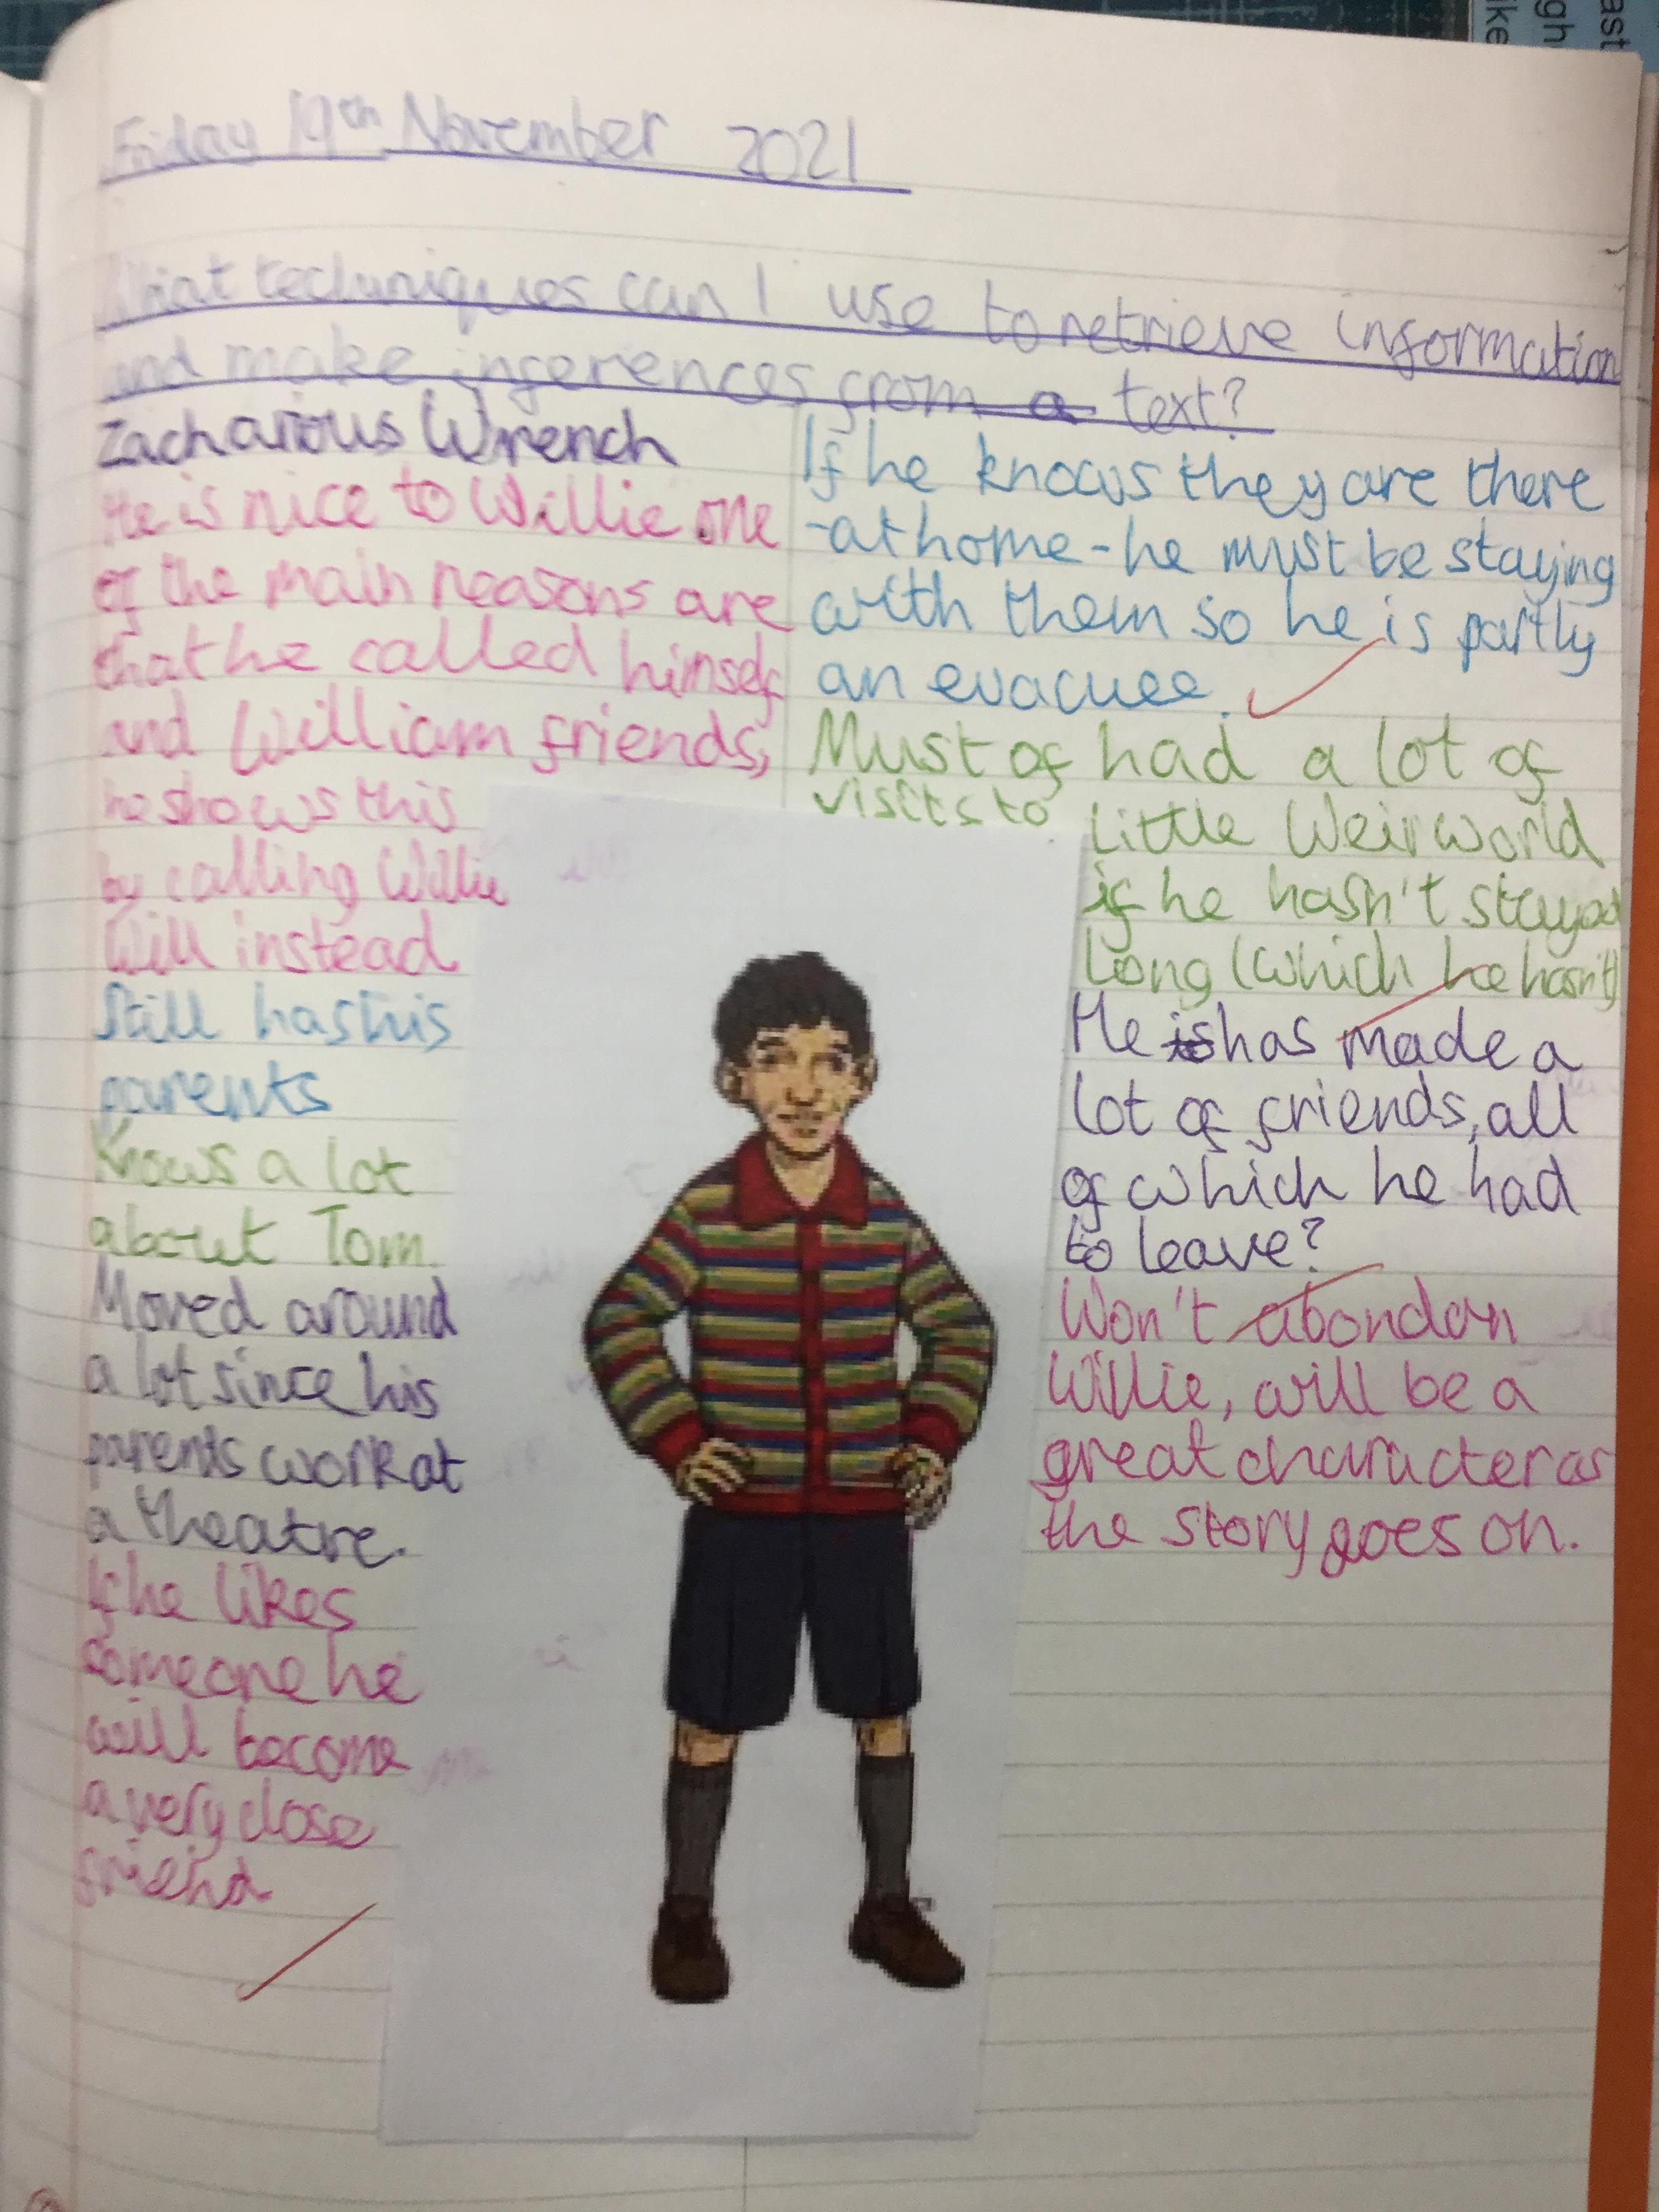 Friday 19th November 2021
What techniques can I use to retrieve information
and make inferences from a text?
Zacharious Wrench
He is nice to Willie one
of the main reasons are
that he called himself
and William friends,
he shows this
by calling Willie
Will instead
Still has his
parents
Knows a lot
about Tom.
Moved around
a lot since his
parents work at
a theatre.
If he likes
someone he
will become
a very close
friend
If he knows they are there
-at home- he must be staying
with them so he is partly
an evacuee.
Must of had a lot of
visits to Little Weirworld
if he hasn't stayed
long (which he hasn't)
He is has made a
lot of friends, all
of which he had
to leave?
Won't abondon
Willie, will be a
great character as
the story goes on.
ast
gh
ike